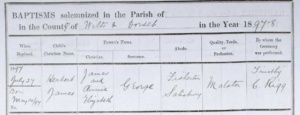 BAPTISMS solemnized in the Parish of
in the County of Wilts & Dorset in the Year 1897-8
When Baptized.
Child's Christian Name.
Parent's Name.
Christian.
Surname.
Abode.
Quality, Trade, or Profession.
By whom the Ceremony was performed.
1897
July 27
Herbert
James
James
and
Annie
Elizabeth
George
Salisbury
Malster
Timothy
C. Rigg